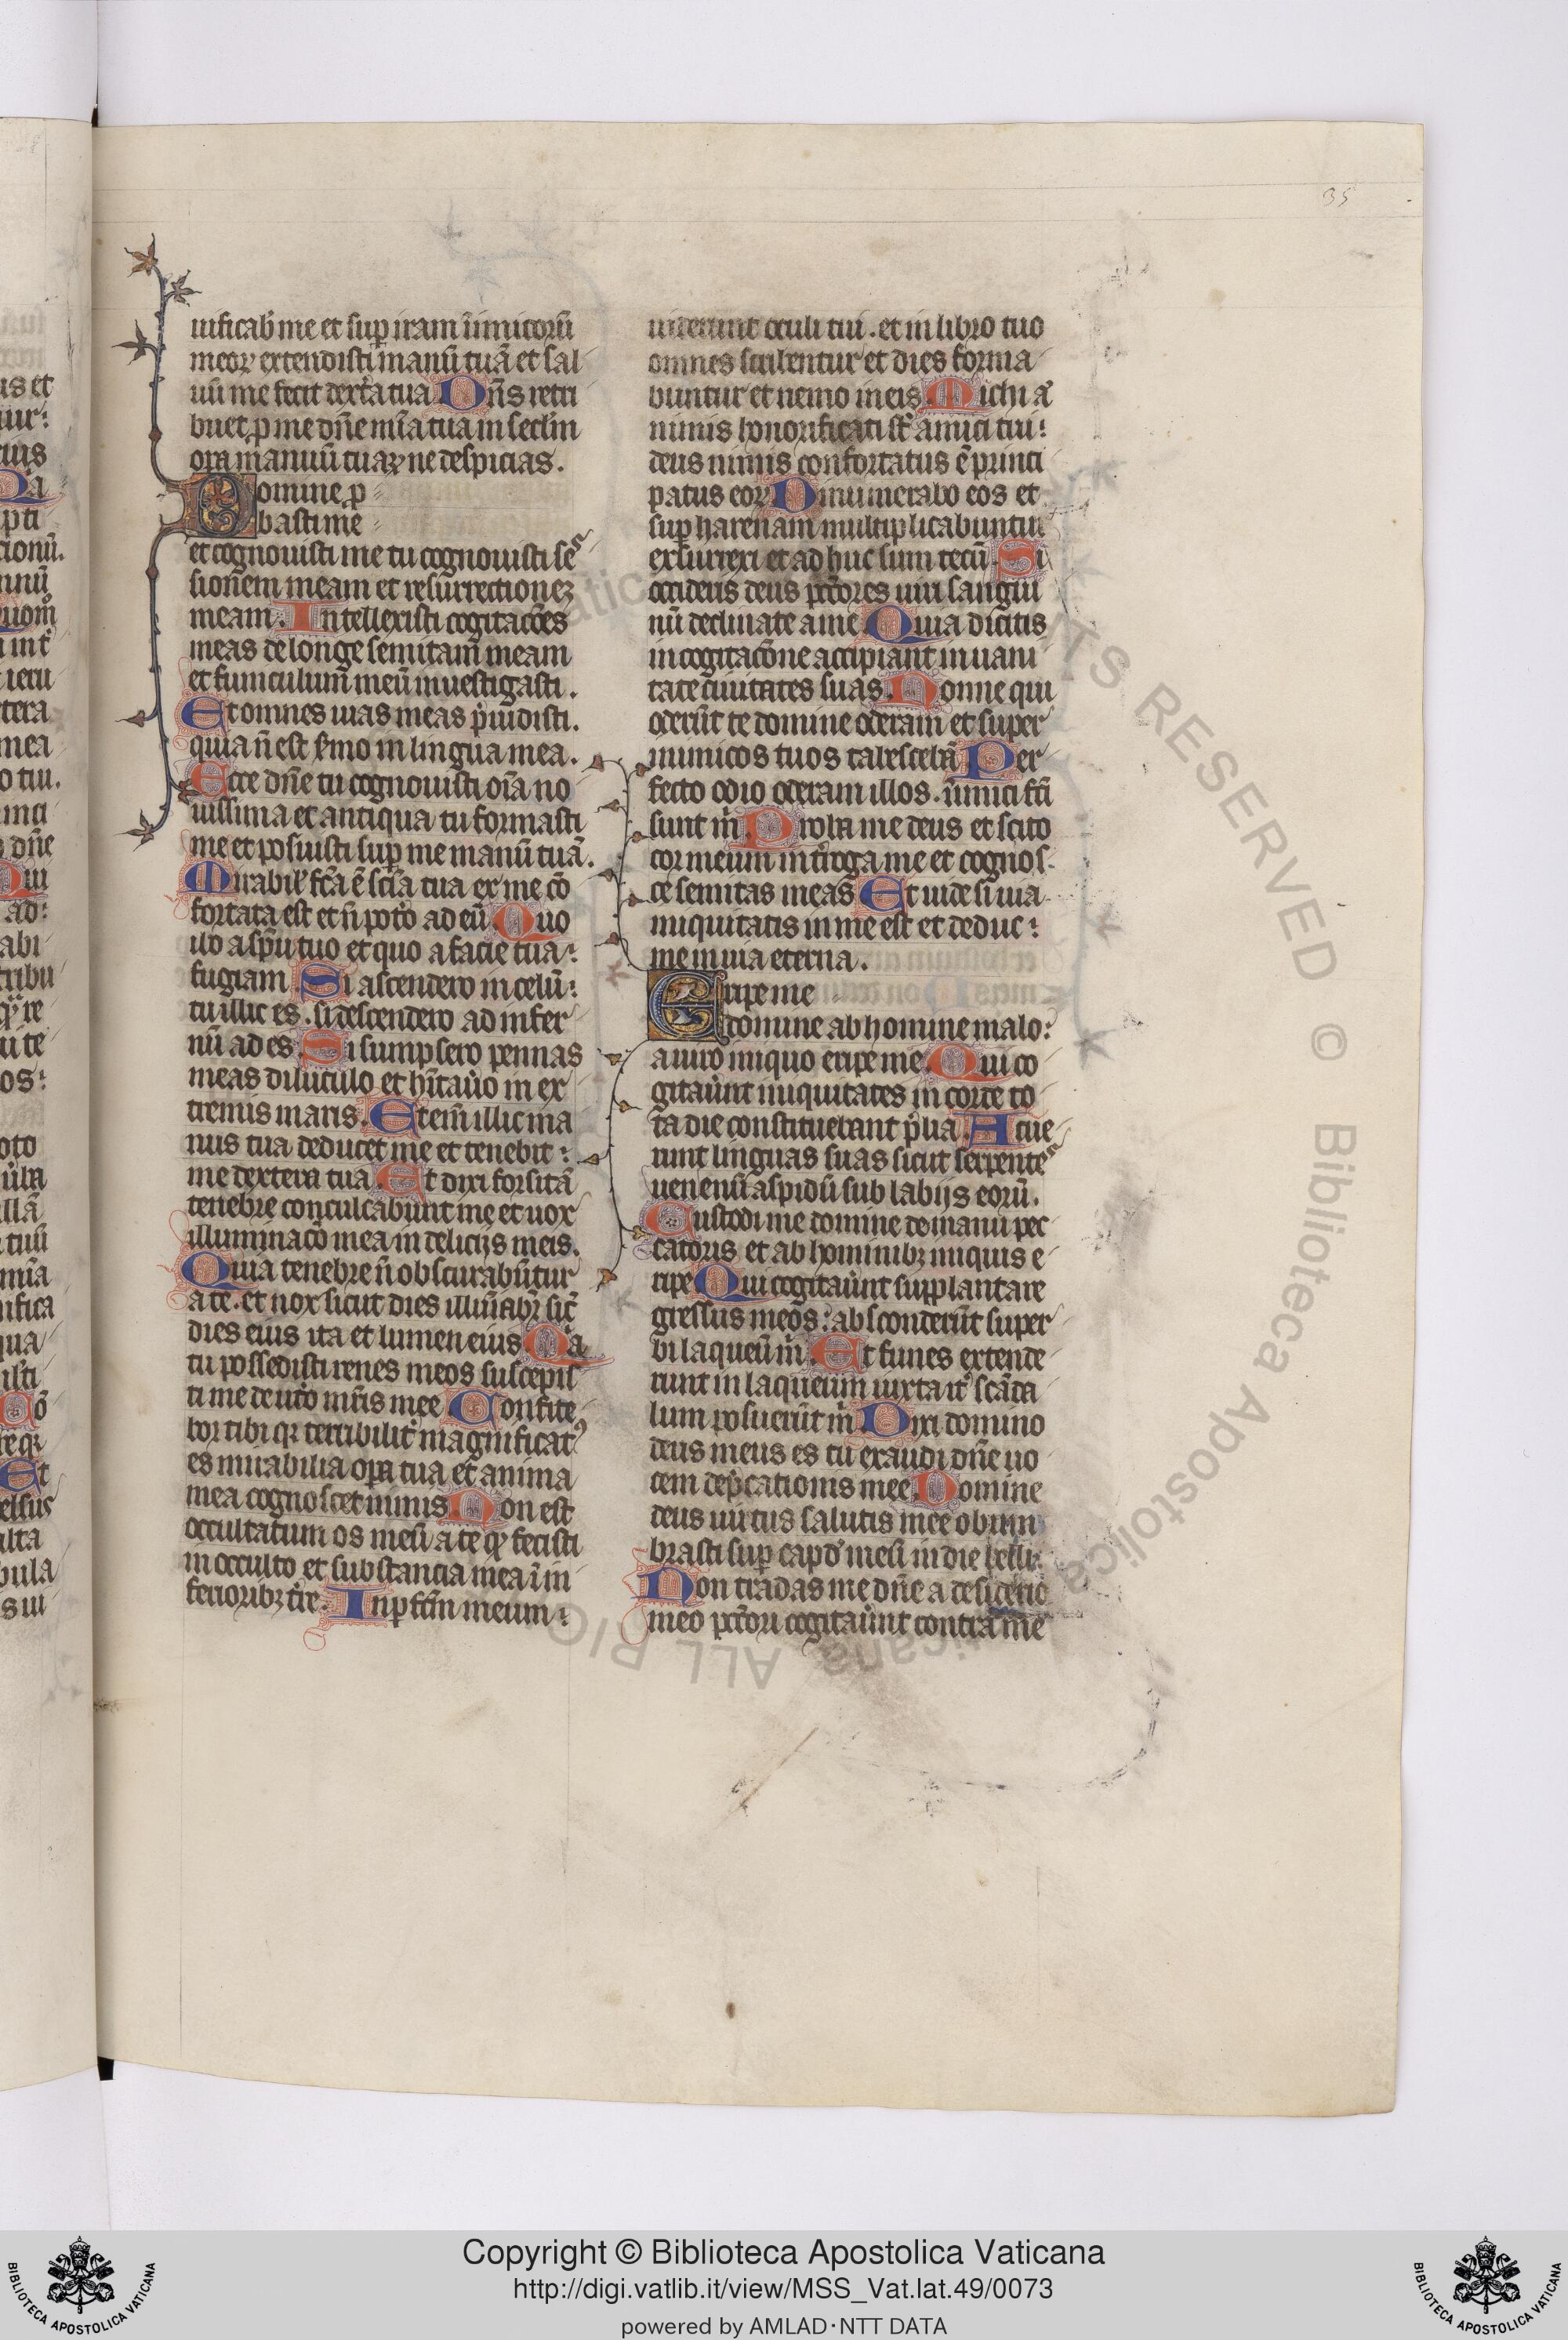 35
uificab̄ me et sup̱ iram ĩimicorũ
meoꝝ extendisti manũ tuã et sal
uũ me fecit dext̄a tua Dñs retri
buet ꝓ me dñe mĩa tua in sectm̄
oꝑa manuũ tuaꝝ ne despicias.
Domine ꝓ
basti me
et cognouisti me tu cognouisti ses
sionem meam et resurrectioneꝫ
meam. Intellexisti cogitacões
meas de longe semitam meam
et funiculum meũ inuestigasti.
Et omnes uias meas p̃uidisti.
quia ñ est ẜmo in lingua mea.
Ecce dñe tu cognouisti oĩa no
uissima et antiqua tu formasti
me et posuisti sup̱ me manũ tuã.
Mirabil' fc̃a ẽ scĩa tua ex me cõ
fortata est et ñ pot̃o ad eũ Quo
ibo a sp̃u tuo et quo a facie tua
fugiam Si ascendero in celũ
tu illic es. si descendero ad infer
nũ ad es. Si sumpsero pennas
meas diluculo et hĩtaũo in ex
tremis maris. Etem̃ illic ma
nus tua deducet me et tenebit
me dextera tua. Et dixi forsitã
tenebre conculcabunt me et nox
illuminac̃o mea in delicijs meis.
Quia tenebre ñ obscurabũtur
a te. et nox sicut dies illũabr̃ sic̃
dies eius ita et lumen eius. Qa
tu possedisti renes meos suscepis
ti me de ut̃o mr̃is mee Confite
bor tibi qꝛ terribilit̃ magnificatꝰ
es mirabilia oꝑa tua et anima
mea cognoscet nimis. Non est
occultatum os meũ a te qͥ fecisti
in occulto et substancia mea ĩ in
ferioribꝫ tr̃e. Inꝑfc̃m meum
uiderunt oculi tui. et in libro tuo
omnes scribentur et dies forma
buntur et nemo in eis. Michi aͫ
nimis honorificati st̃ amici tui
deus nimis confortatus ẽ princi
patus eoꝝ Dinumerabo eos et
sup̱ harenam multiplicabuntur
exsurrexi et ad huc sum tecũ. Si
occideris deus pc̃cores uiri sangui
nũ declinate a me Quia dicitis
in cogitac̃one accipiant in uani
tate ciuitates suas. Nonne qui
oderũt te domine oderam et super
inimicos tuos tabescebã Per
fecto odio oderam illos. iñimici fc̃i
sunt m̃ Proba me deus et scito
cor meum int̃roga me et cognos
ce semitas meas Et uide si uia
iniquitatis in me est et deduc
me in uia eterna.
Eripe me
domine ab homine malo
a uiro iniquo eripe me. Qui co
gitaũnt iniquitates in corde to
ta die constituebant p̃lia. Acue
runt linguas suas sicut serpentes
uenenũ aspidũ sub labijs eorũ.
Custodi me domine de manu pec
catoris et ab hominibꝫ iniquis e
ripe Qui cogitaũnt supplantare
gressus meos. absconderũt super
bi laqueũ m̃. Et funes extende
runt in laqueum iuxta it̃ scãda
lum posuerũt m̃ Dixi domino
deus meus es tu exaudi dñe uo
cem dep̃cationis mee. Domine
deus uirtus salutis mee obum
brasti sup̱ capđ meũ in die belli
Non tradas me dñe a desiderio
meo pc̃cori cogitaũnt contra me
Copyright © Biblioteca Apostolica Vaticana
http://digi.vatlib.it/view/MSS_Vat.lat.49/0073
powered by AMLAD·NTT DATA